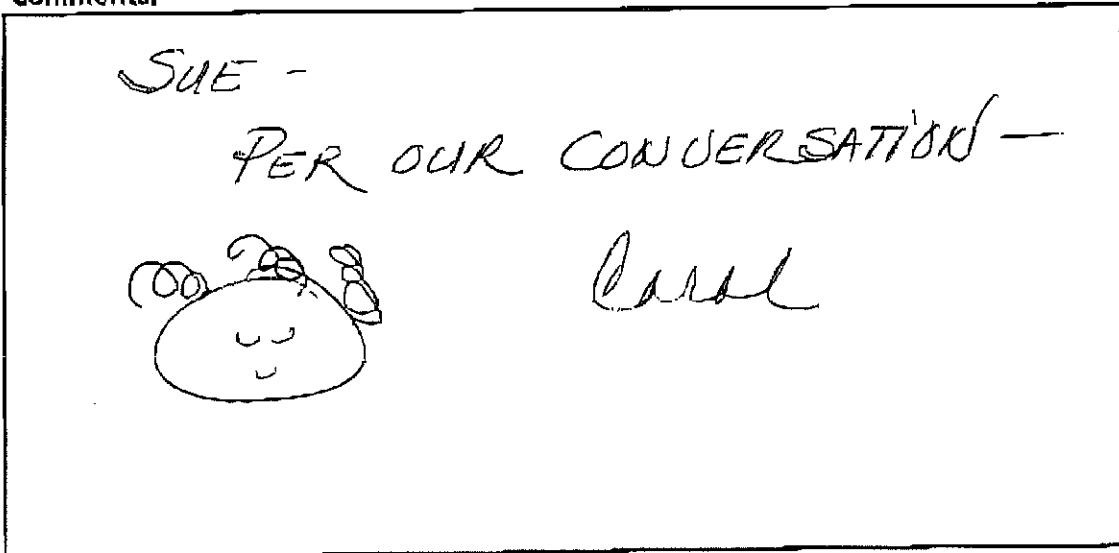 Comments:
SUE -
PER OUR CONVERSATION —
Carol